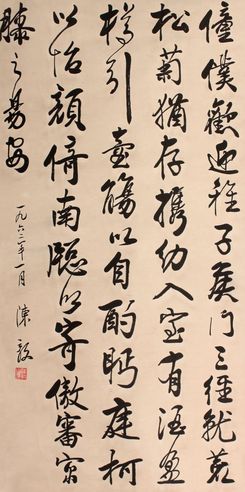 僮僕歡迎稚子候门三徑就荒
松菊猶存攜幼入室有酒盈
樽引壺觴以自酌眄庭柯
以怡顏倚南牕以寄傲審容
膝之易安
一九六二年一月 陳